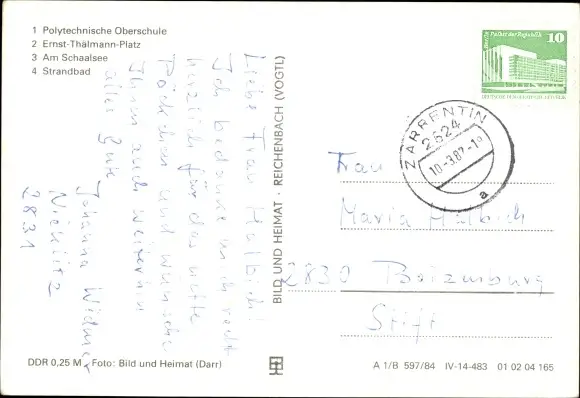 1 Polytechnische Oberschule
2 Ernst-Thälmann-Platz
3 Am Schaalsee
4 Strandbad
Liebe Frau Halbich!
Ich bedanke mich recht
herzlich für das nette
Päckchen und wünsche
Ihnen auch weiterhin
alles Gute
Johanna Widmer
2831
BILD UND HEIMAT · REICHENBACH (VOGTL)
Palast der Republik
10
ZARRENTIN
2824
10.-3.87.-1
a
Frau
Maria Halbich
2830 Boizenburg
Stift
DDR 0,25 M · Foto: Bild und Heimat (Darr)
A 1/B 597/84 IV-14-483 01 02 04 165